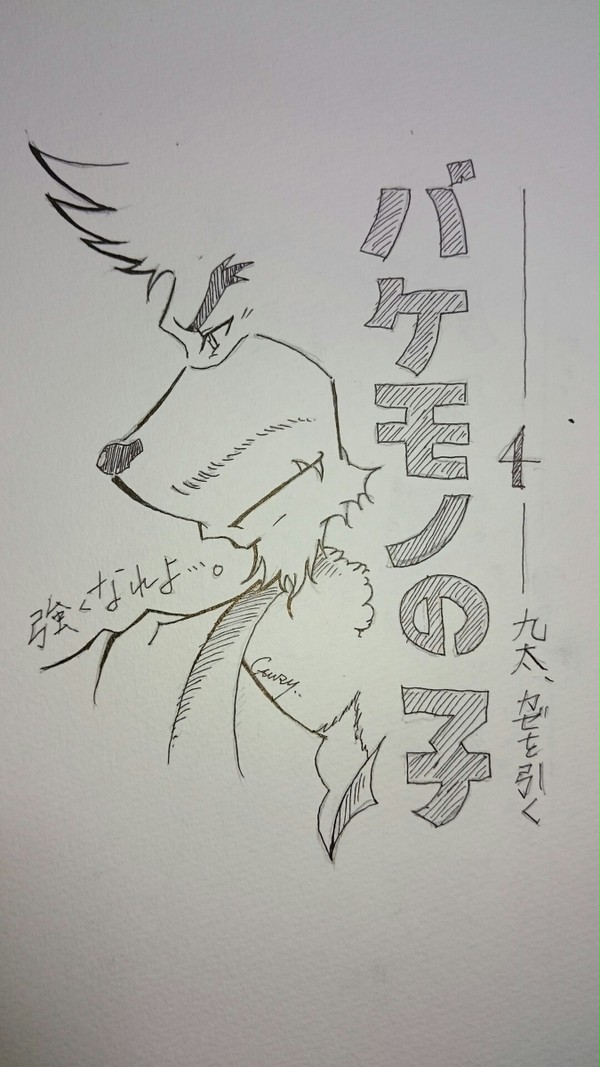 バケモノの子
4
九太、カゼを引く
強くなれよ…。